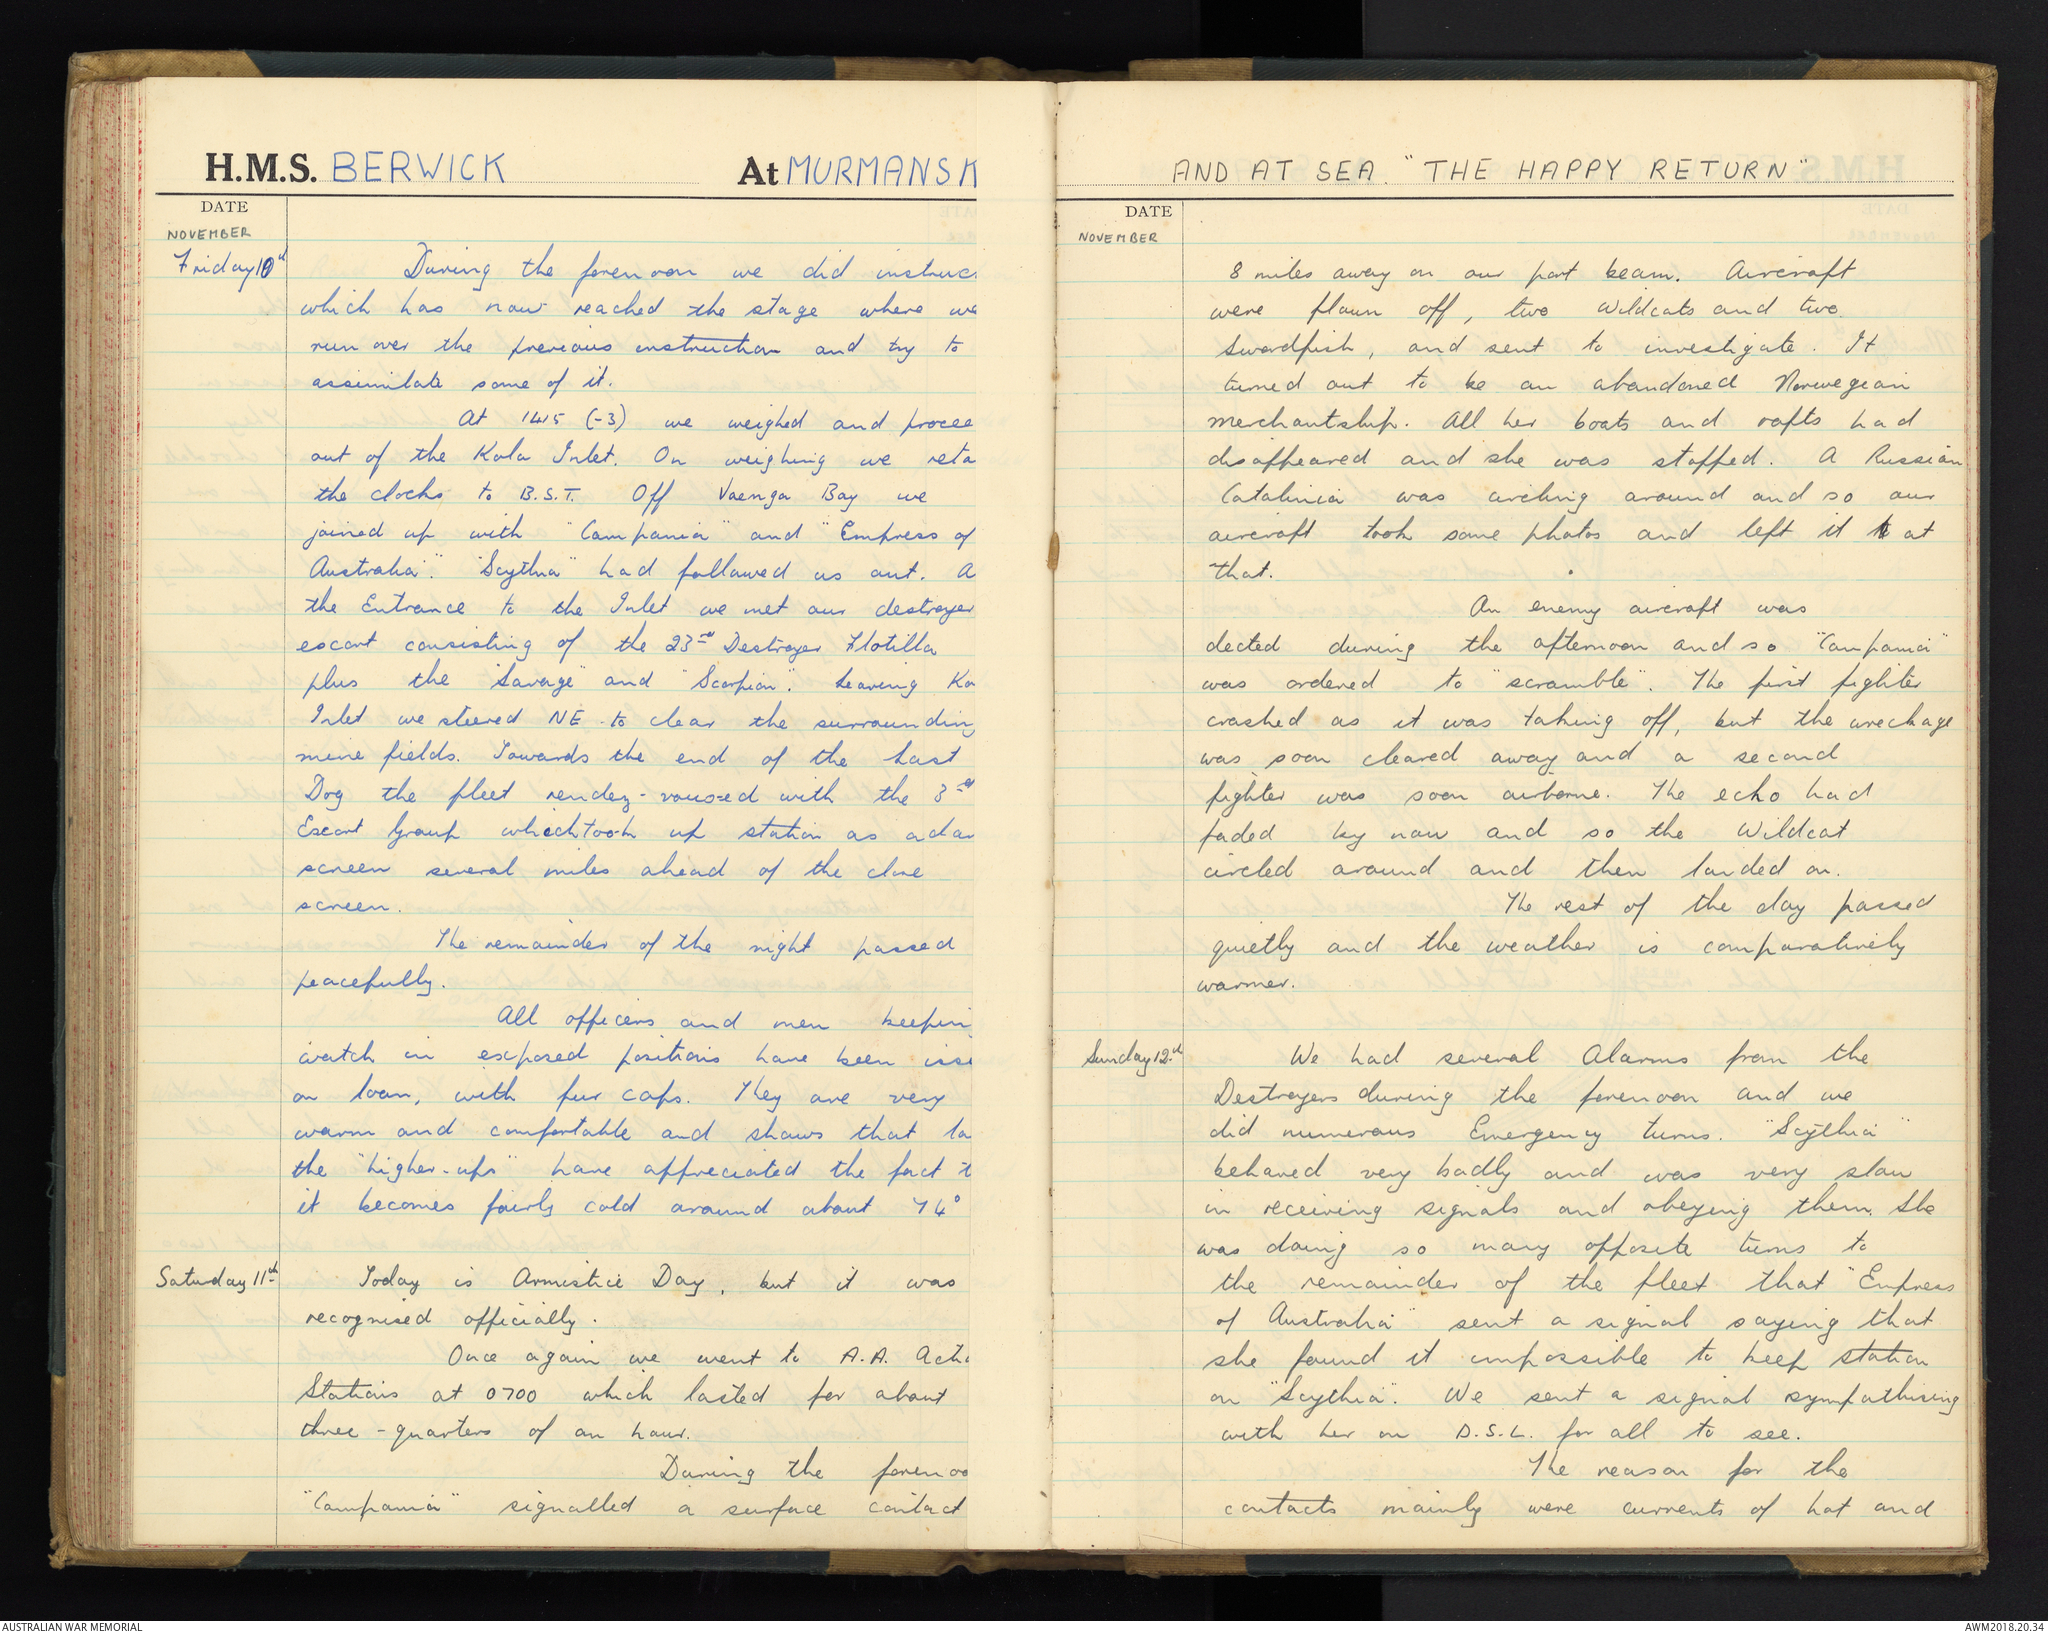 H.M.S. BERWICK At MURMANSK
DATE
NOVEMBER
Friday 10th
During the forenoon we did instruc
which has now reached the stage where we
run over the previous instruction and try to
assimilate some of it.
At 1415 (-3) we weighed and procee
out of the Kola Inlet. On weighing we reta
the clocks to B.S.T. Off Vaenga Bay we
joined up with "Campania" and "Empress of
Australia". "Scythia" had followed us out. A
the Entrance to the Inlet we met our destroyer
escort consisting of the 23rd Destroyer Flotilla
plus the "Savage" and "Scorpion". Leaving Ko
Inlet we steered NE to clear the surrounding
mine fields. Towards the end of the Last
Dog the fleet rendez-voused with the 3rd
Escort Group which took up station as a dar
screen several miles ahead of the close
screen.
The remainder of the night passed
peacefully.
All officers and men keepin
watch in exposed positions have been issu
on loan, with fur caps. They are very
warm and comfortable and shows that la
the "higher-ups" have appreciated the fact t
it becomes fairly cold around about 74°
Saturday 11th
Today is Armistice Day, but it was
recognised officially.
Once again we went to A.A. Acti
Stations at 0700 which lasted for about
three-quarters of an hour.
During the forenoo
"Campania" signalled a surface contact
AND AT SEA. "THE HAPPY RETURN"
DATE
NOVEMBER
8 miles away on our port beam. Aircraft
were flown off, two Wildcats and two
Swordfish, and sent to investigate. It
turned out to be an abandoned Norwegian
merchantship. All her boats and rafts had
disappeared and she was stopped. A Russian
Catalinia was circling around and so our
aircraft took some photos and left it at
that.
An enemy aircraft was
dected during the afternoon and so "Campania"
was ordered to "scramble". The first fighter
crashed as it was taking off, but the wreckage
was soon cleared away and a second
fighter was soon airborne. The echo had
faded by now and so the Wildcat
circled around and then landed on.
The rest of the day passed
quietly and the weather is comparatively
warmer.
Sunday 12th
We had several Alarms from the
Destroyers during the forenoon and we
did numerous Emergency turns. "Scythia"
behaved very badly and was very slow
in receiving signals and obeying them. She
was doing so many opposite turns to
the remainder of the fleet that "Empress
of Australia" sent a signal saying that
she found it impossible to keep station
on "Scythia". We sent a signal sympathising
with her on D.S.L. for all to see.
The reason for the
contacts mainly were currents of hot and
AUSTRALIAN WAR MEMORIAL
AWM2018.20.34